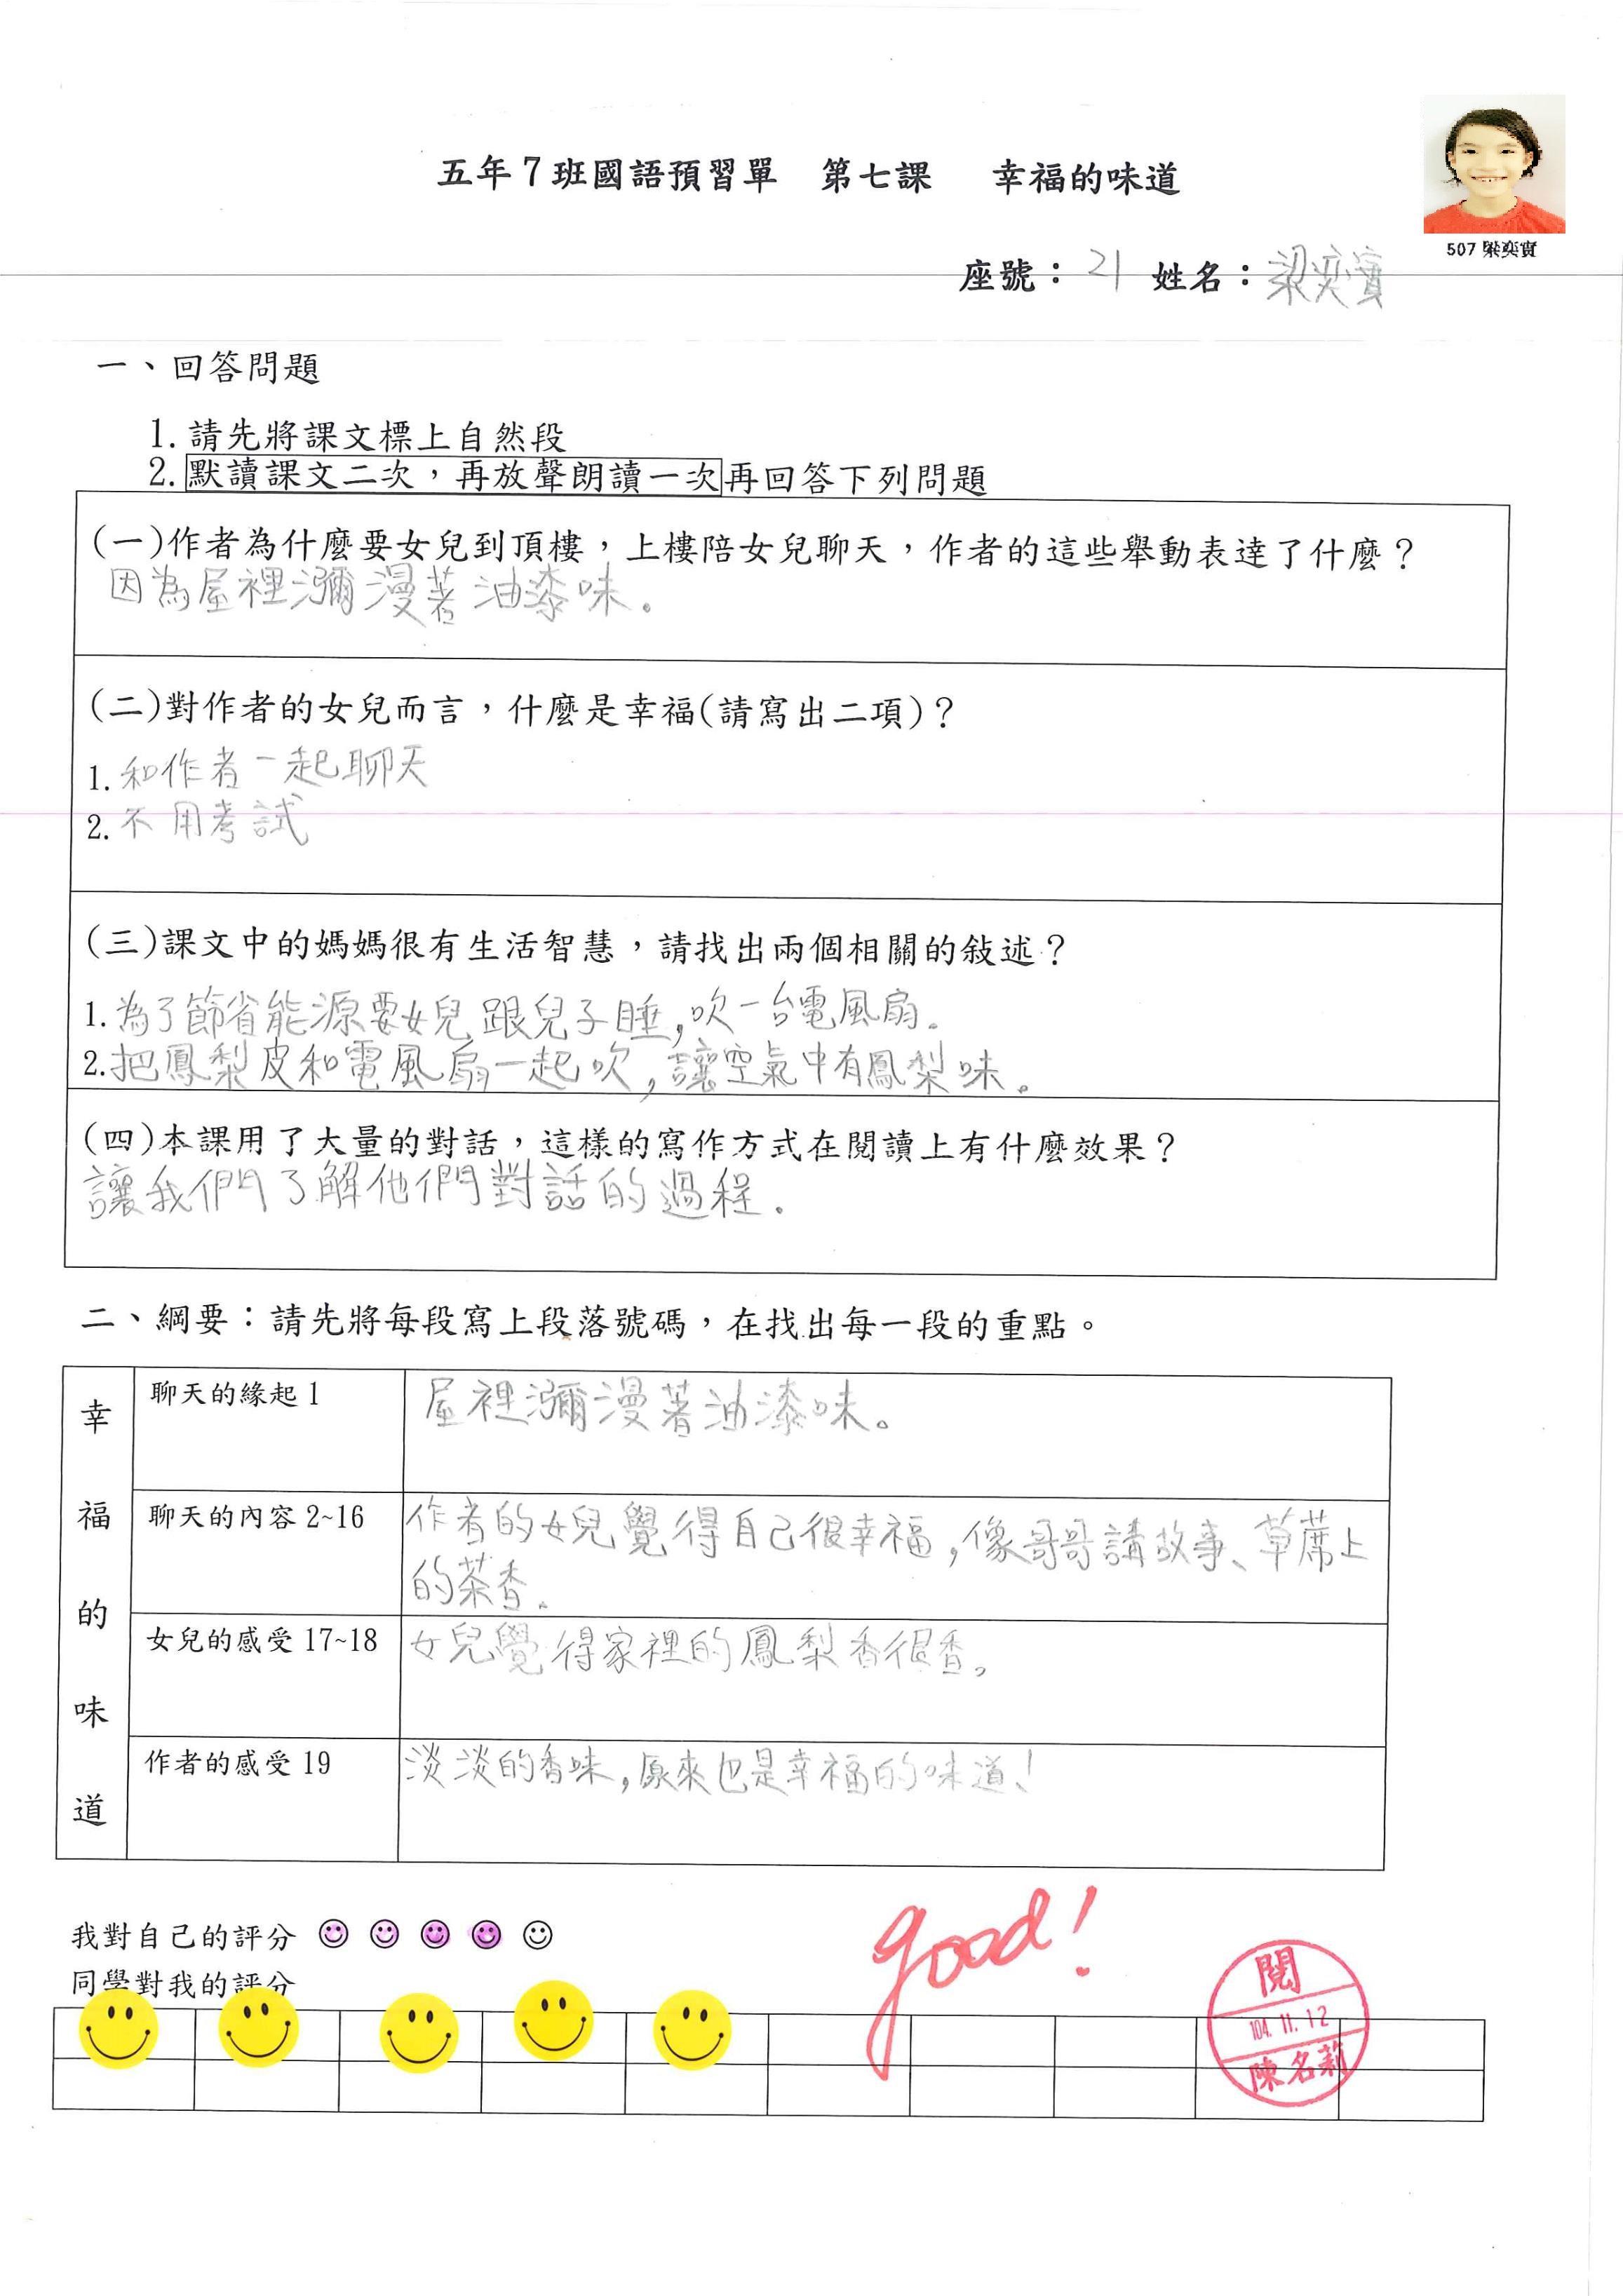 五年7班國語預習單 第七課 幸福的味道
507 梁奕實
座號：21 姓名：梁奕實
一、回答問題
1.請先將課文標上自然段
2.默讀課文二次，再放聲朗讀一次再回答下列問題
(一)作者為什麼要女兒到頂樓，上樓陪女兒聊天，作者的這些舉動表達了什麼？
因為屋裡瀰漫著油漆味。
(二)對作者的女兒而言，什麼是幸福(請寫出二項)？
1.和作者一起聊天
2.不用考試
(三)課文中的媽媽很有生活智慧，請找出兩個相關的敍述？
1.為了節省能源要女兒跟兒子睡,吹一台電風扇。
2.把鳳梨皮和電風扇一起吹,讓空氣中有鳳梨味。
(四)本課用了大量的對話，這樣的寫作方式在閱讀上有什麼效果？
讓我們了解他們對話的過程。
二、綱要：請先將每段寫上段落號碼，在找出每一段的重點。
幸福的味道
聊天的緣起 1 屋裡瀰漫著油漆味。
聊天的內容 2~16 作者的女兒覺得自己很幸福,像哥哥講故事、草蓆上
的茶香。
女兒的感受 17~18 女兒覺得家裡的鳳梨香很香。
作者的感受 19 淡淡的香味,原來也是幸福的味道!
我對自己的評分
同學對我的評分
good!
閱
104.11.12
陳名莉